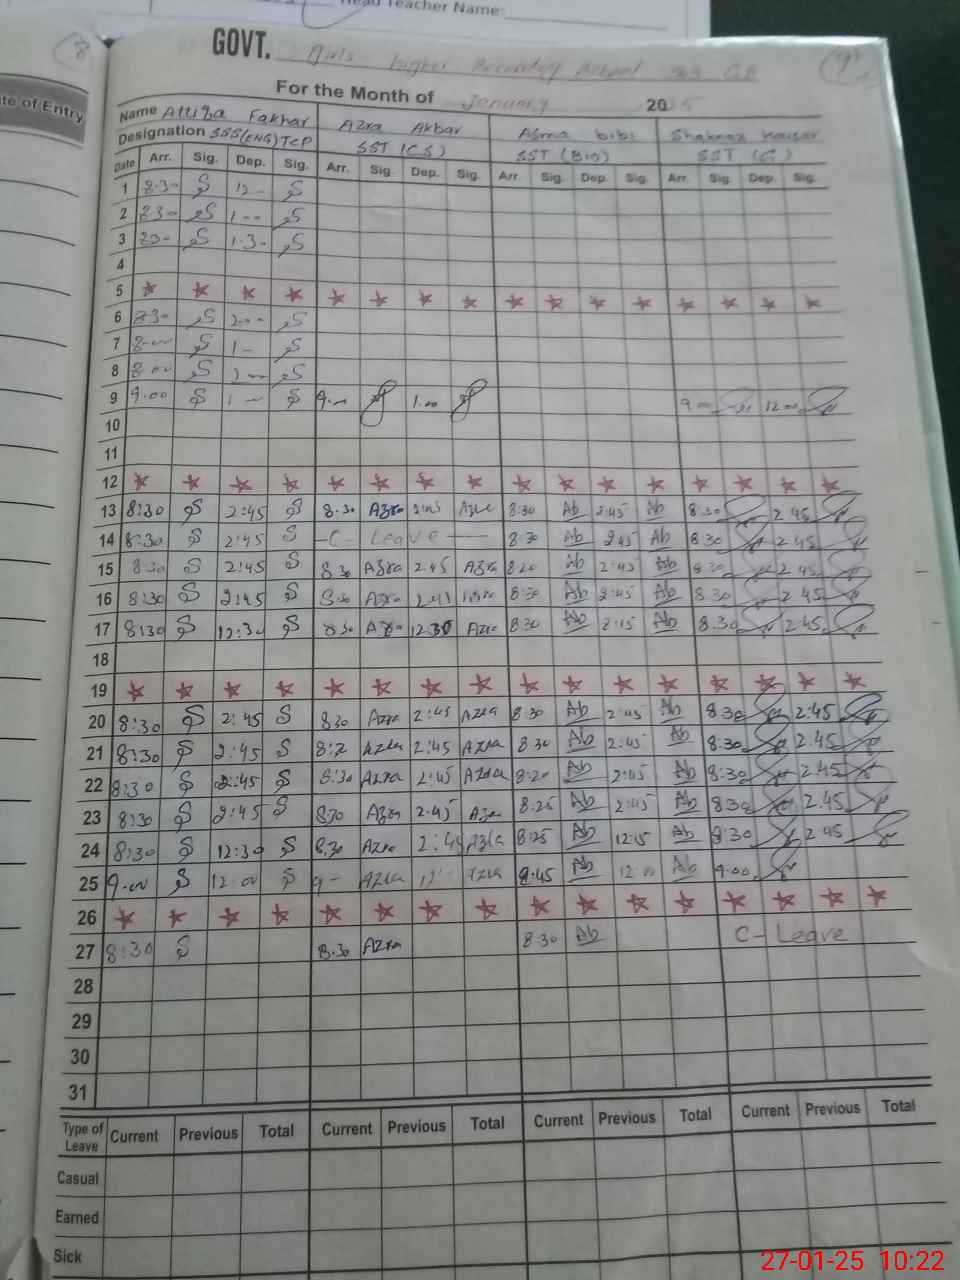 Head Teacher Name:
8
9
GOVT. Girls higher Secondary School
te of Entry
For the Month of January 2025
Name Attiqa Fakhar Azra Akbar Asma bibi Shahnaz Kausar
Designation SSS(ENG) TCP SST (CS) SST (Bio) SST (G)
Date Arr. Sig. Dep. Sig. Arr. Sig. Dep. Sig. Arr. Sig. Dep. Sig. Arr. Sig. Dep. Sig.
1 8.30 S 12 S
2 S 1 S
3 S 1.30 S
4
5
6 S S
7 8.00 S 1 S
8 8.00 S S
9 9.00 S 1 S 9.00 1.00 9 12.00
10
11
12
13 8:30 S 2:45 S 8.30 Azra Azra 8:30 Ab 2:45 Ab 8:30 2.45
14 8:30 S 2:45 S C- Leave 8:30 Ab 2:45 Ab 8:30 2.45
15 8:30 S 2:45 S 8.30 Azra 2.45 Azra Ab 2:45 Ab 8:30 2.45
16 8:30 S 2:45 S 8.30 Azra Azra 8:30 Ab 2:45 Ab 8:30 2.45
17 8:30 S 12:30 S 8.30 Azra 12.30 Azra 8:30 Ab Ab 8:30 2.45
18
19
20 8:30 S 2:45 S 830 Azra 2:45 Azra 8:30 Ab 2:45 Ab 8:30 2:45
21 8:30 S 2:45 S Azra 2:45 Azra 8:30 Ab 2:45 Ab 8:30 2.45
22 8:30 S 2:45 S 8:30 Azra 2:45 Azra 8:20 Ab 2:45 Ab 8:30 2.45
23 8:30 S 2:45 S 830 Azra 2.45 Azra 8:25 Ab 2:45 Ab 8:30 2.45
24 8:30 S 12:30 S 8.30 Azra 2:45 Azra 8:25 Ab Ab 8:30 2.45
25 9.00 S 12.00 S 9 Azra 12 Azra 8:45 Ab 12:00 Ab 9.00
26
27 8:30 S 8.30 Azra 8:30 Ab C- Leave
28
29
30
31
Type of Leave Current Previous Total Current Previous Total Current Previous Total Current Previous Total
Casual
Earned
Sick
27-01-25 10:22